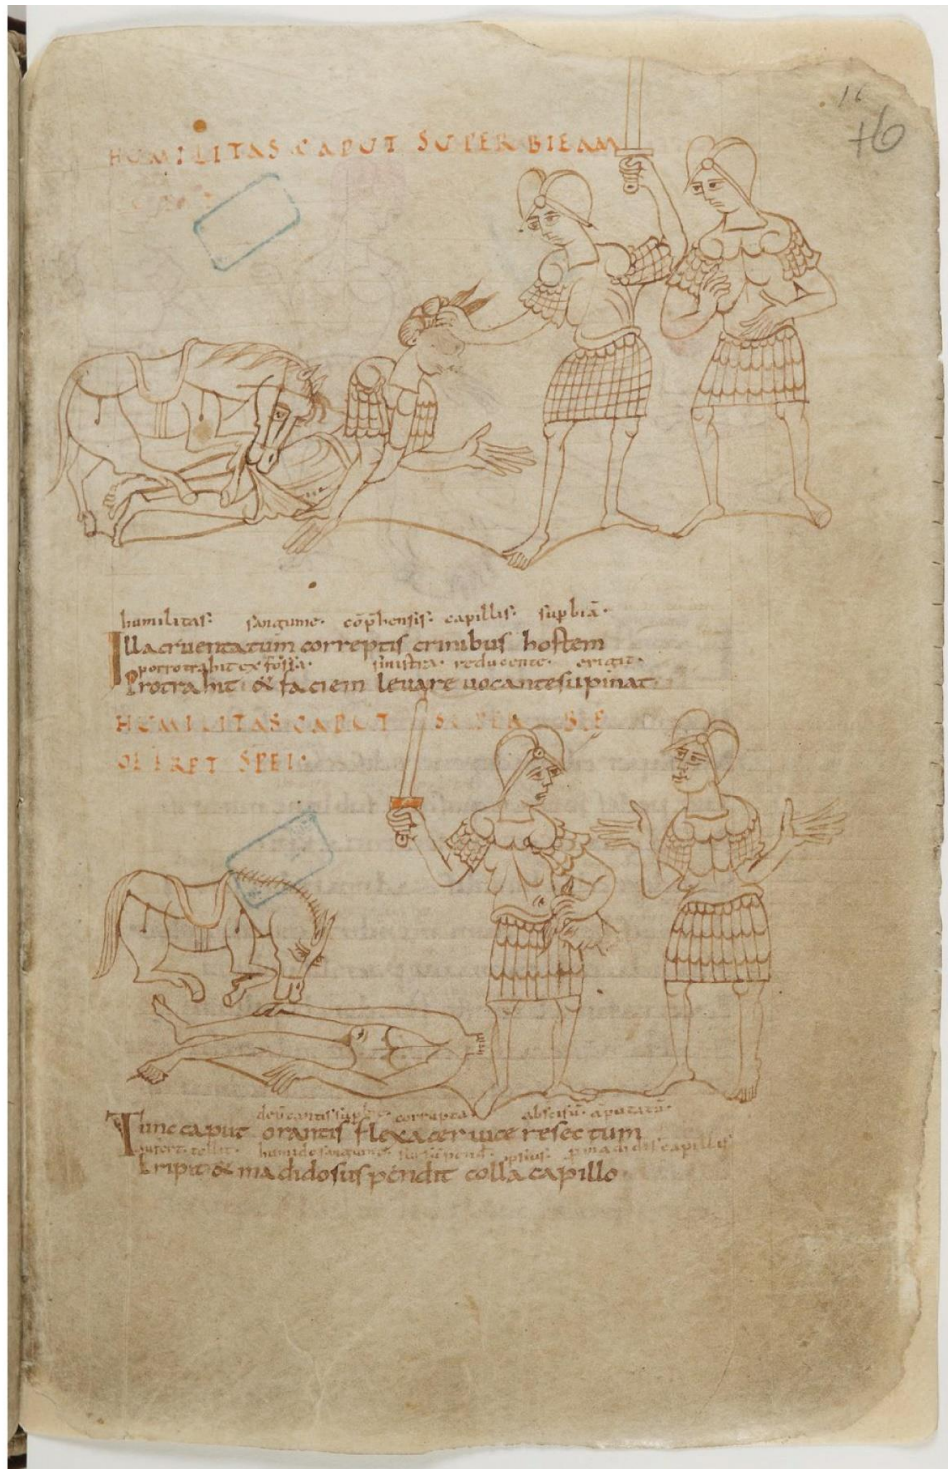 16
+6
HUMILITAS CAPUT SUPERBIEAM
humilitas· sanguine· cōp̄hensis· capillis· sup̄biā·
Illa cruentatum correptis crinibus hostem
protrahit ex fossa· sinistra· reducente· erigit·
Protrahit· & faciem leuare uocantesupinat·
HUMILITAS CAPUT SUPER BIE
OFFRET SPEI·
corrupta abscisū· aputatū·
Tunc caput orantis flexa ceruice resectum
aufert· tollit· humide sanguine· ipsius· madidis capillis
Eripit & madido suspendit colla capillo·